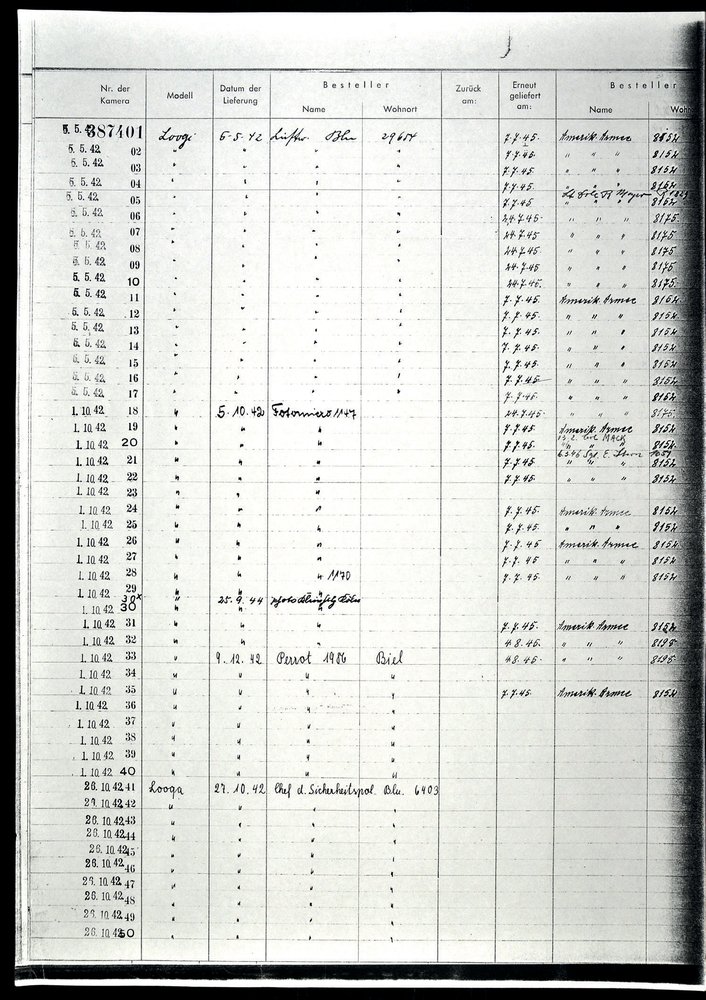 Nr. der Kamera Modell Datum der Lieferung Besteller Name Wohnort Zurück am: Erneut geliefert am: Besteller Name
5. 5. 42 387401 Loogi 5.5.42 Luftw. Bln 29654 7.7.45. Amerik. Armee 8152
5. 5. 42 02 " " " " 7.7.45. " " " 8152
5. 5. 42 03 " " " " 7.7.45. " " " 8152
5. 5. 42 04 " " " " 7.7.45. " " " 8152
5. 5. 42 05 " " " " 7.7.45 " " " 8152
5. 5. 42 06 " " " " 24.7.45. " " " 8175
5. 5. 42 07 " " " " 24.7.45 " " " 8175
5. 5. 42 08 " " " " 24.7.45 " " " 8175
5. 5. 42 09 " " " " 24.7.45 " " " 8175
5. 5. 42 10 " " " " 24.7.45. " " " 8175
5. 5. 42 11 " " " " 7.7.45. Amerik. Armee 8152
5. 5. 42 12 " " " " 7.7.45. " " " 8152
5. 5. 42 13 " " " " 7.7.45. " " " 8152
5. 5. 42 14 " " " " 7.7.45. " " " 8152
5. 5. 42 15 " " " " 7.7.45. " " " 8152
5. 5. 42 16 " " " " 7.7.45 " " " 8152
5. 5. 42 17 " " " " 7.7.45 " " " 8152
1. 10. 42 18 " 5.10.42 1147 24.7.45. " " " 8175
1. 10. 42 19 " " " 7.7.45 Amerik. Armee 8152
MACK
1. 10. 42 20 " " " 7.7.45. " " " 8152
E. Stern
1. 10. 42 21 " " " 7.7.45 " " " 8152
1. 10. 42 22 " " " 7.7.45 " " " 8152
1. 10. 42 23 " " "
1. 10. 42 24 " " " 7.7.45 Amerik. Armee 8152
1. 10. 42 25 " " " 7.7.45. " " " 8152
1. 10. 42 26 " " " 7.7.45 Amerik. Armee 8152
1. 10. 42 27 " " " 7.7.45 " " " 8152
1. 10. 42 28 " " " 1170 7.7.45 " " " 8152
1. 10. 42 29 " " "
30x " 25.9.44 Köln
1. 10. 42 30 " " "
1. 10. 42 31 " " " 7.7.45. Amerik. Armee 8152
1. 10. 42 32 " " " 4.8.45. " " " 8195
1. 10. 42 33 " 9.12.42 Perrot 1986 Biel 4.8.45. " " " 8195
1. 10. 42 34 " " " "
1. 10. 42 35 " " " " 7.7.45 Amerik. Armee 8152
1. 10. 42 36 " " " "
1. 10. 42 37 " " " "
1. 10. 42 38 " " " "
1. 10. 42 39 " " " "
1. 10. 42 40 " " " "
26. 10. 42 41 Looga 27.10.42 Chef d. Sicherheitspol. Bln. 6403
26. 10. 42 42 " " " "
26. 10. 42 43 " " " "
26. 10. 42 44 " " " "
26. 10. 42 45 " " " "
26. 10. 42 46 " " " "
26. 10. 42 47 " " " "
26. 10. 42 48 " " " "
26. 10. 42 49 " " " "
26. 10. 42 50 " " " "